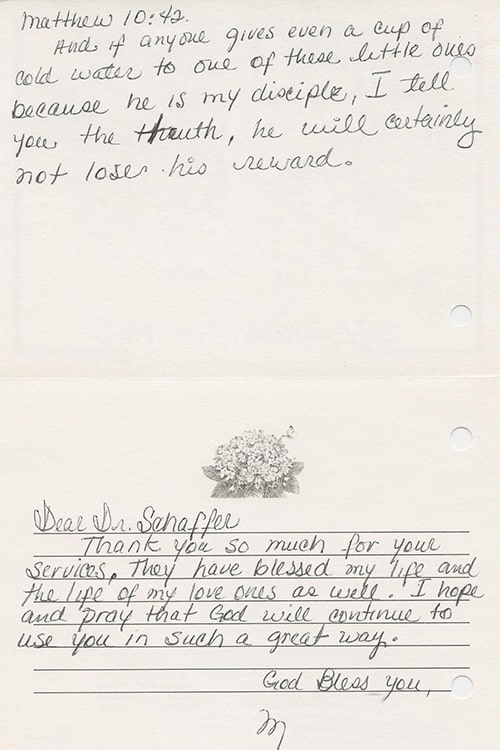 Matthew 10:42.
And if anyone gives even a cup of
cold water to one of these little ones
because he is my disciple, I tell
you the thruth, he will certainly
not lose his reward.
Dear Dr. Schaffer
Thank you so much for your
services, They have blessed my life and
the life of my love ones as well. I hope
and pray that God will continue to
use you in such a great way.
God Bless You,
M